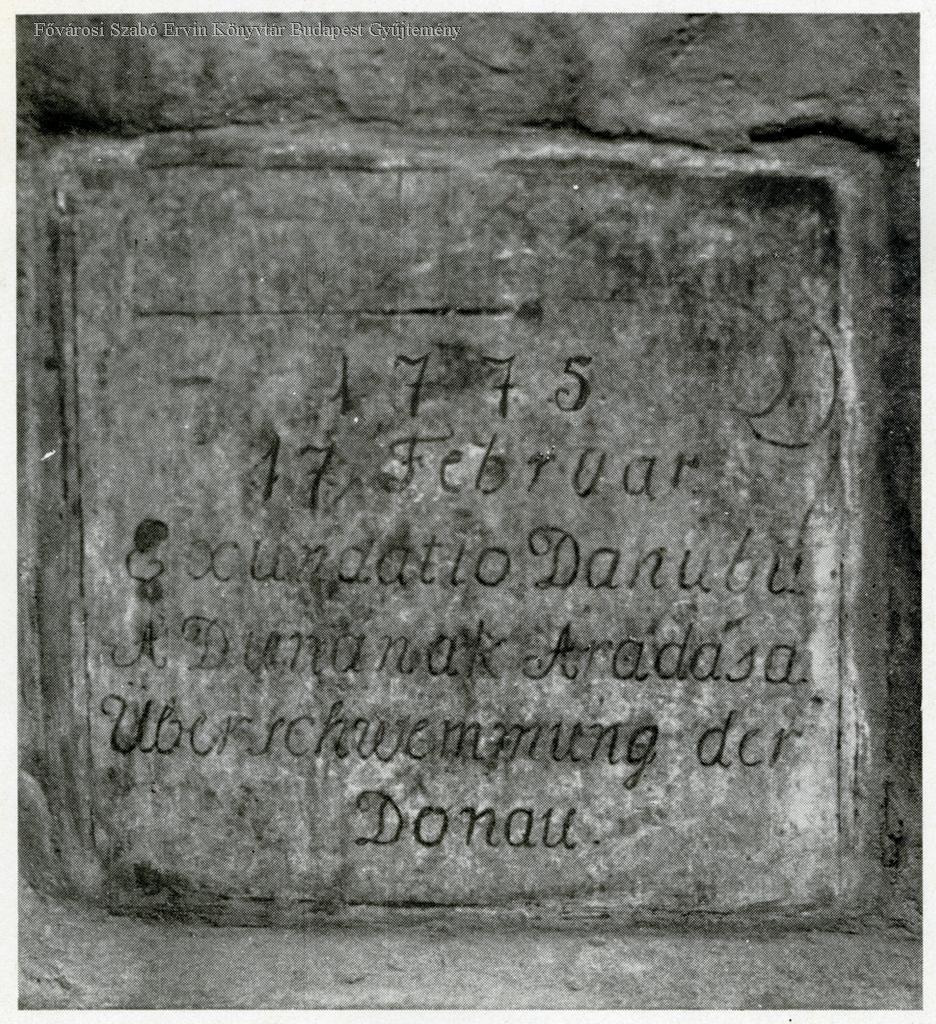 Fővárosi Szabó Ervin Könyvtár Budapest Gyűjtemény
1775
17, Februar
Exundatio Danubii
A Dunának Áradása
Überschwemmung der
Donau.